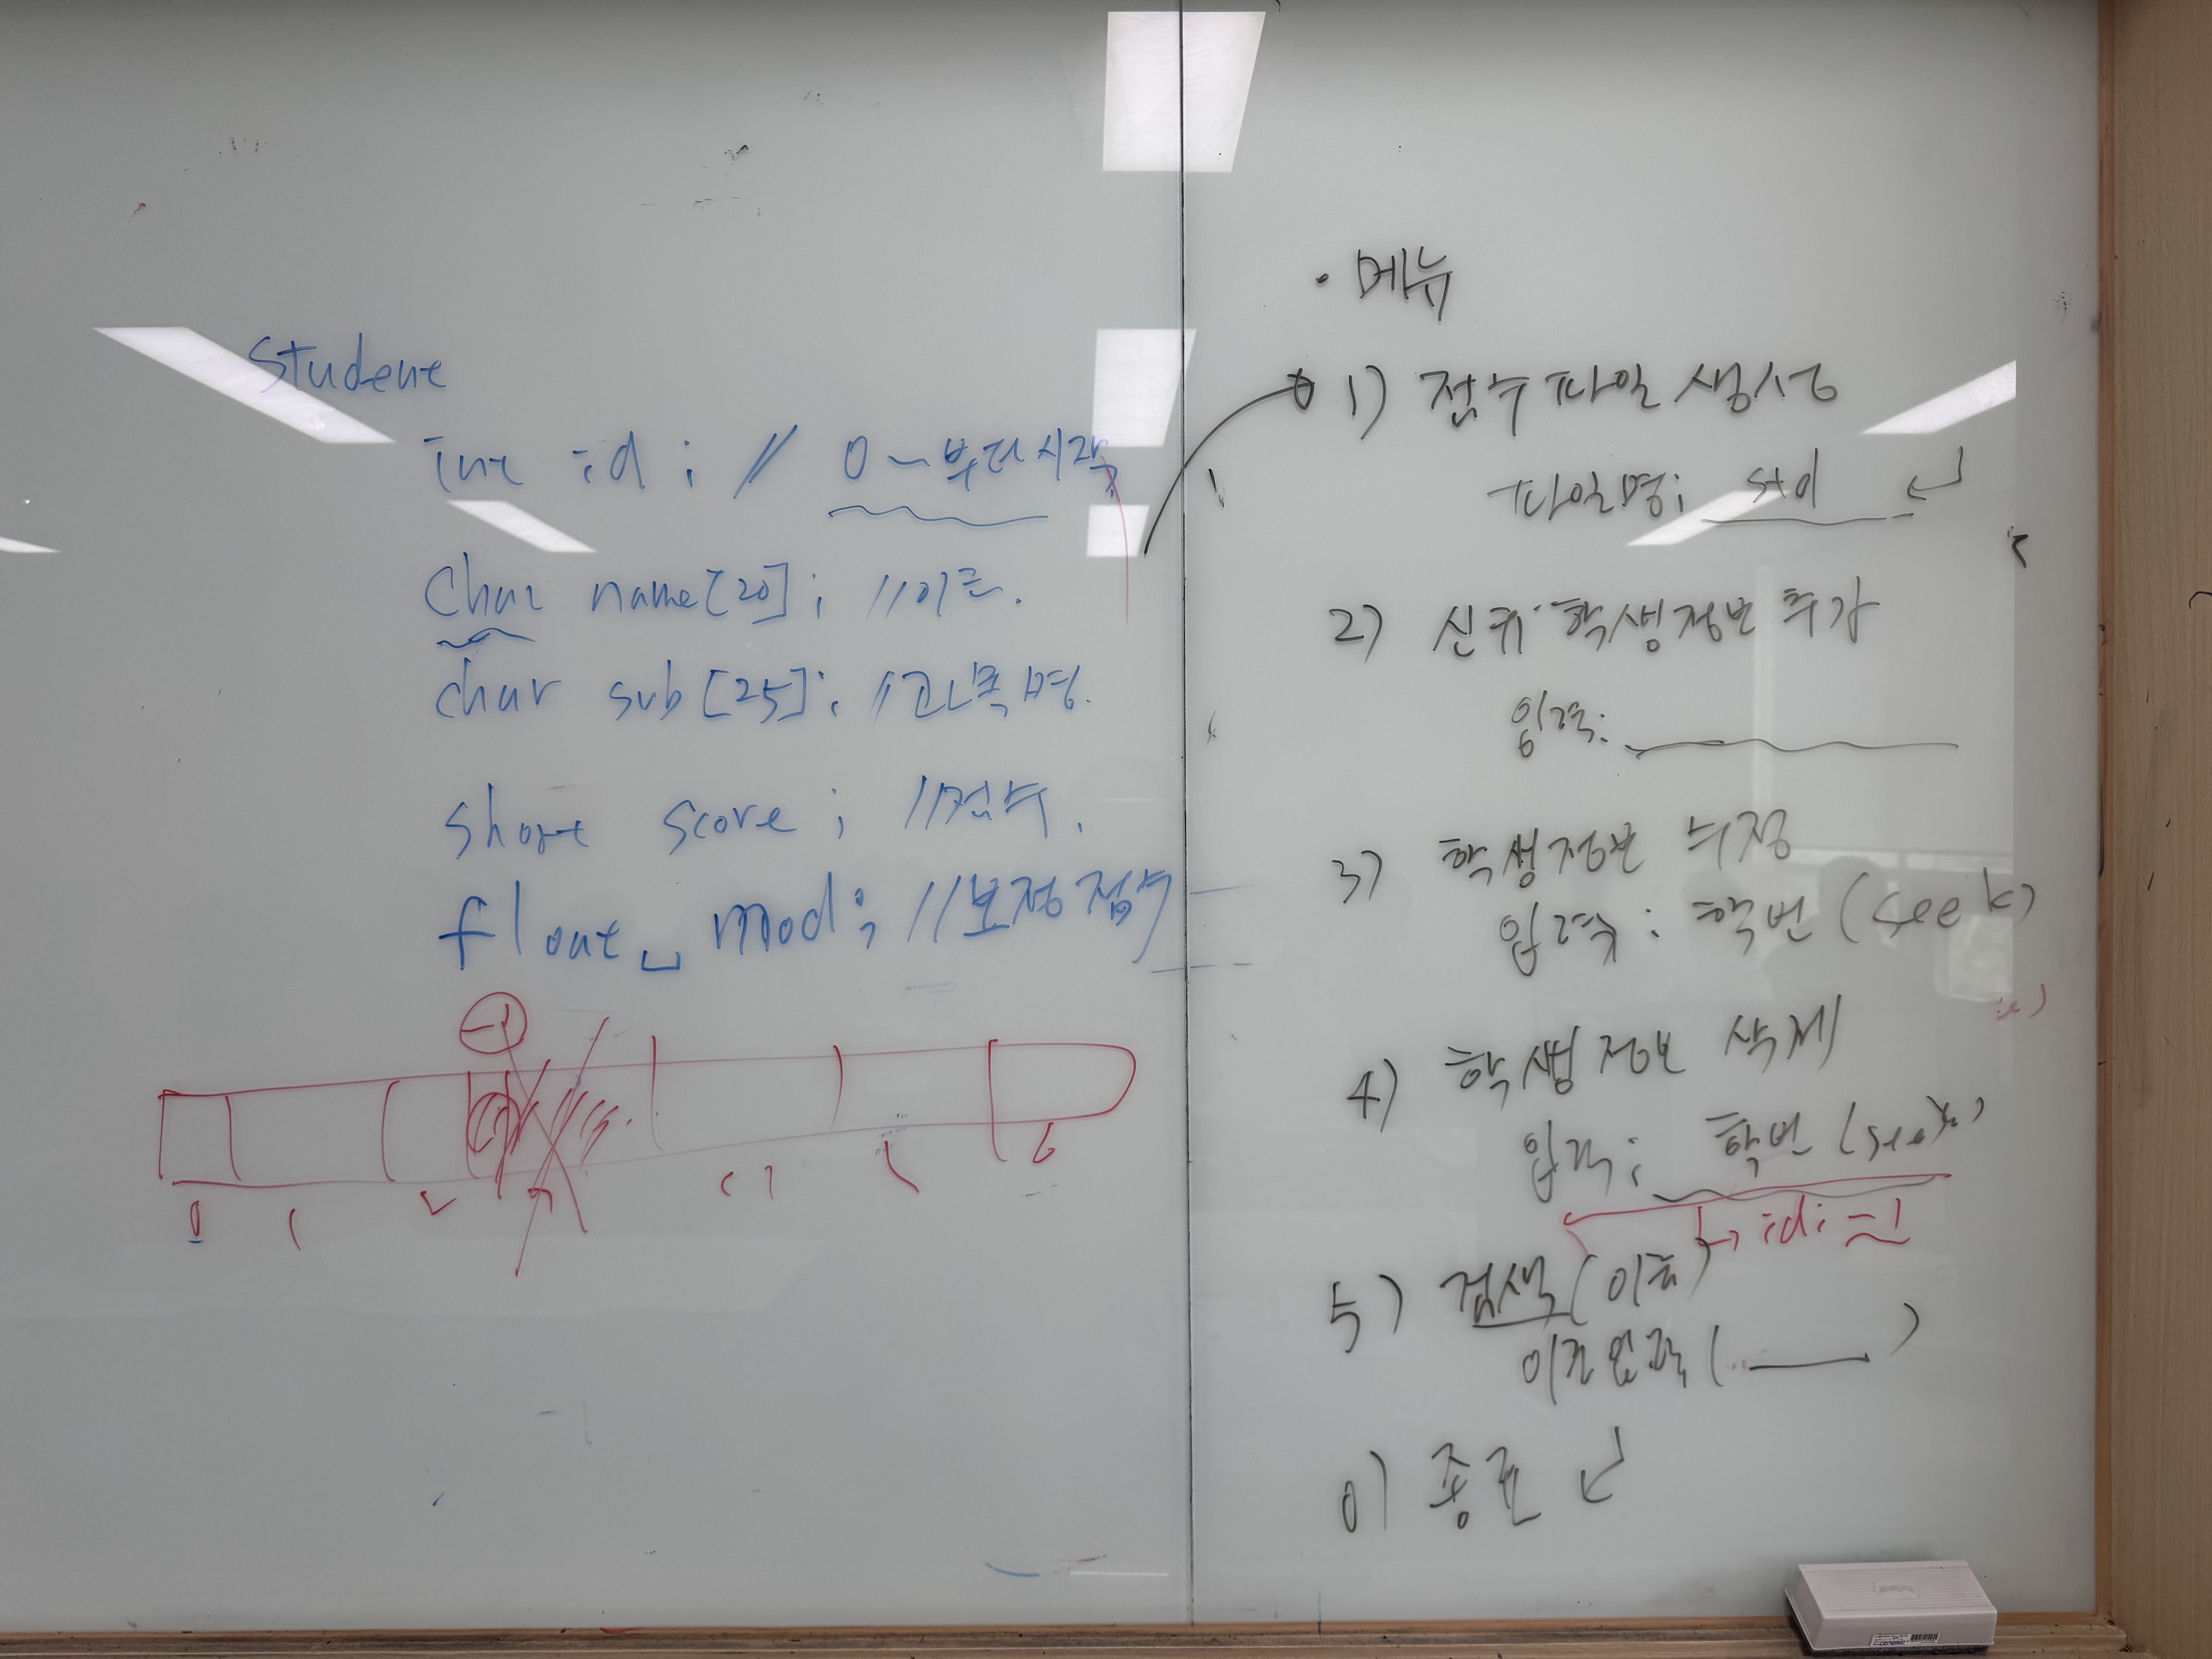 Student
int id ; // 0~부터시작
char name[20] ; //이름.
char sub [25] ; //과목명.
short score ; //점수.
float␣ mod ; //보정점수
-1
0 1 2 3 5 6
· 메뉴
1) 점수파일 생성
파일명; std ↵
2) 신규 학생정보 추가
입력: 
3) 학생정보 수정
입력 : 학번 (seek)
4) 학생정보 삭제
입력 ; 학번 (seek)
↳ id: -1
5) 검색 (이름)
이름입력 ( )
0) 종료 ↵